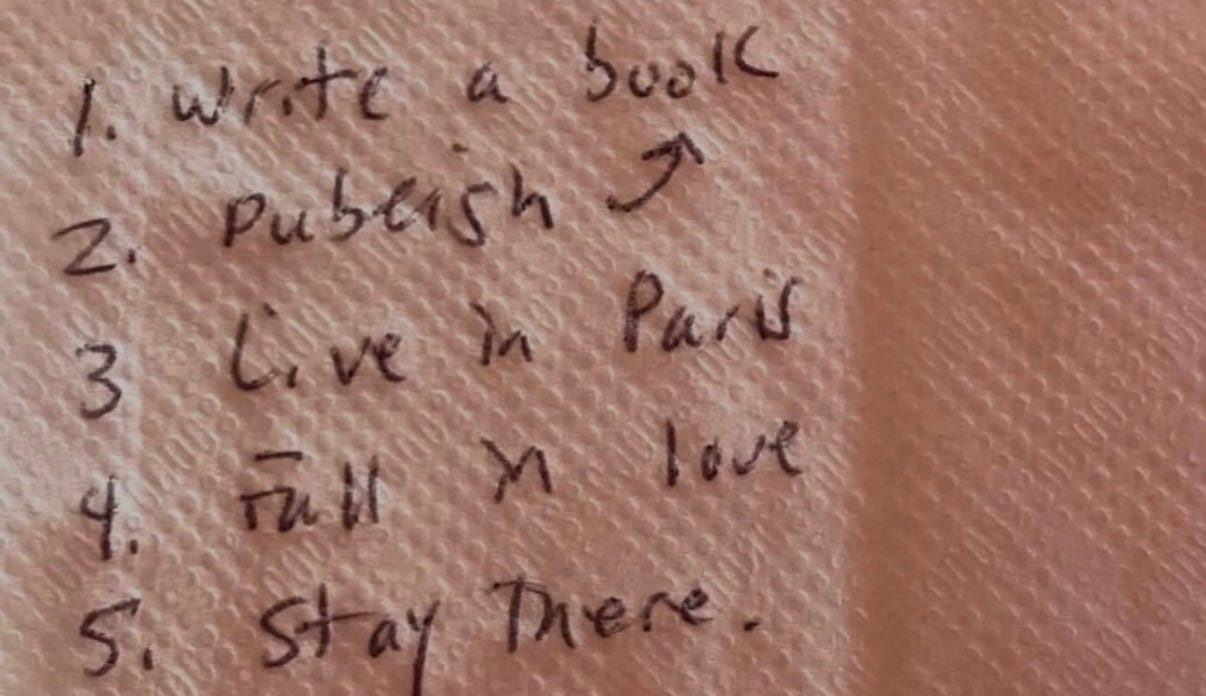 1. Write a book
2. Publish ↗
3 Live in Paris
4. Fall in love
5. Stay There.